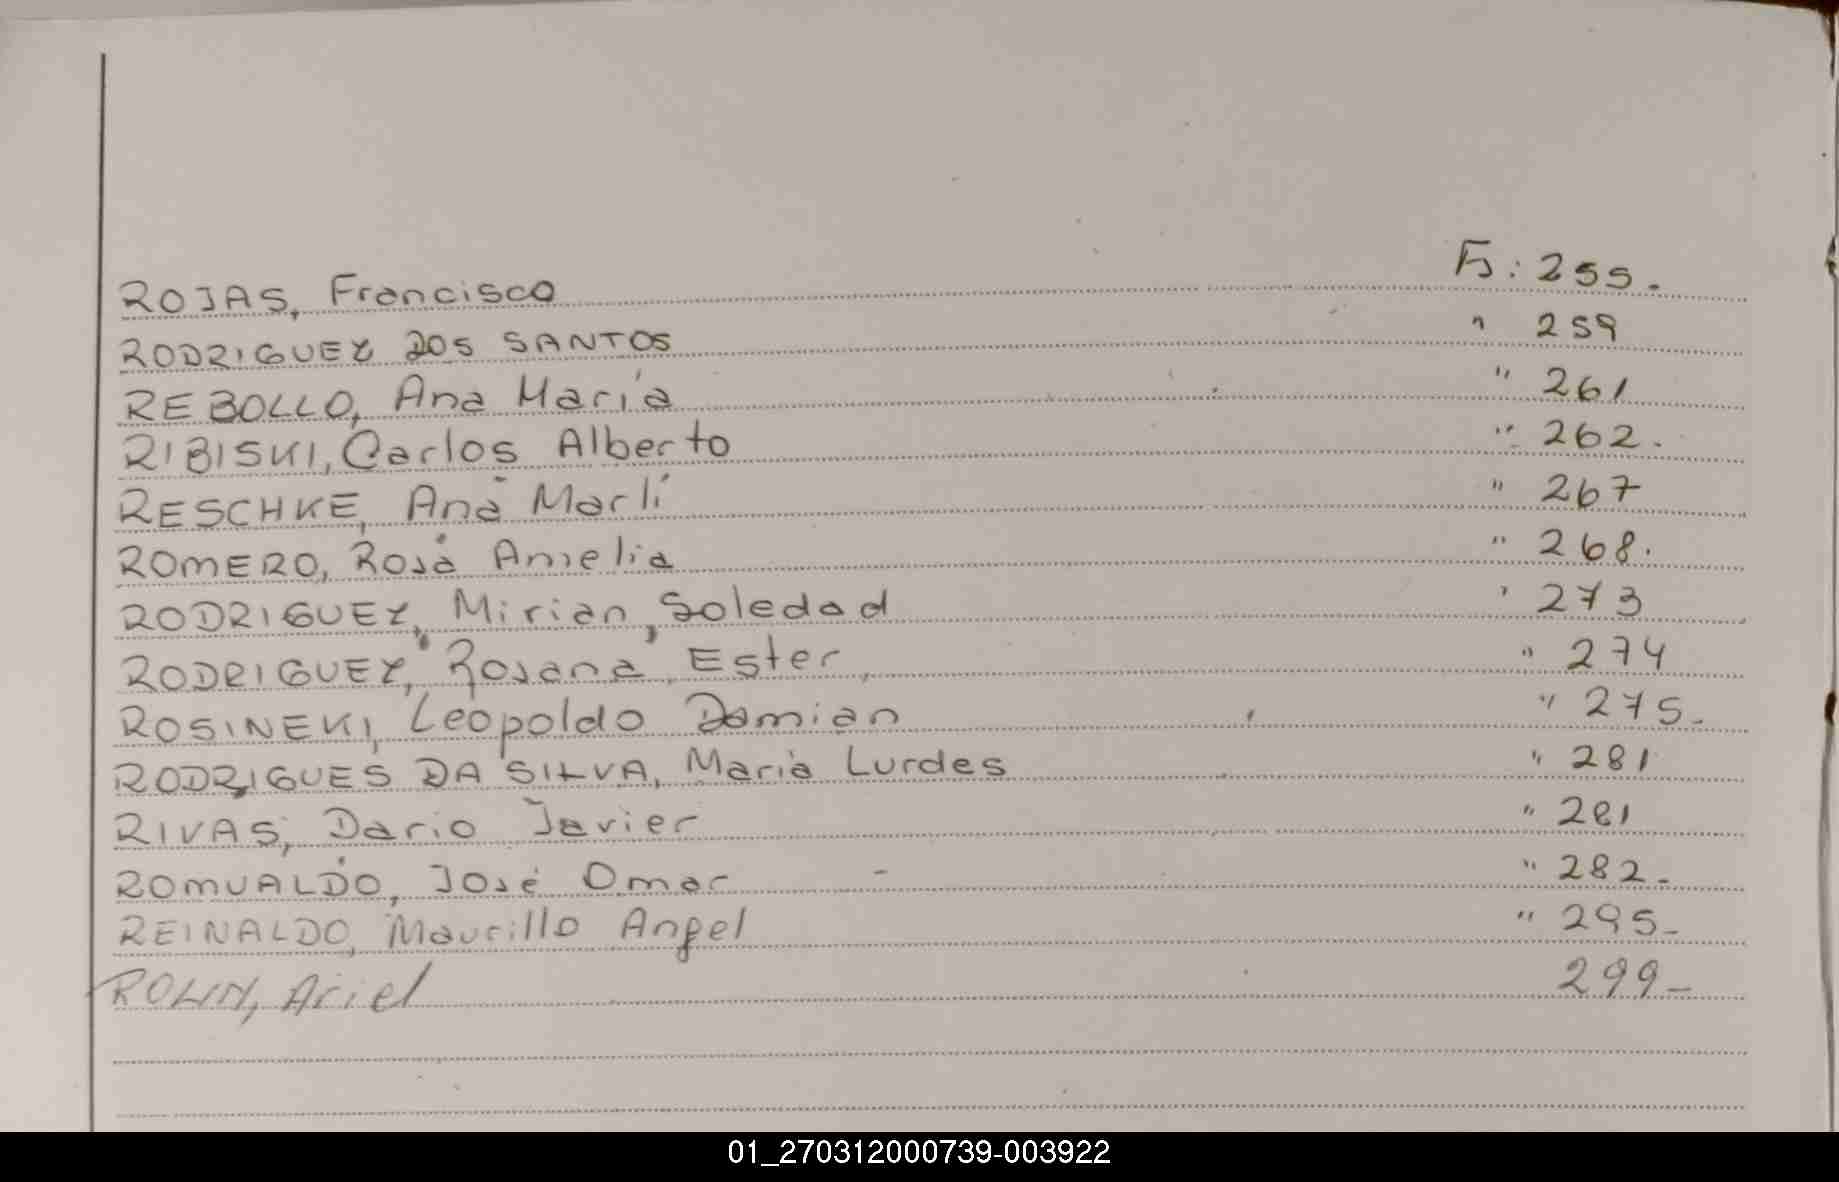 ROJAS, Francisco Fs: 255.
RODRIGUEZ DOS SANTOS " 259
REBOLLO, Ana María " 261
RIBISKI, Carlos Alberto " 262.
RESCHKE, Ana Marlí " 267
ROMERO, Rosa Amelia " 268.
RODRIGUEZ, Mirian, Soledad " 273
RODRIGUEZ, Rosana Ester " 274
ROSINEKI, Leopoldo Damian " 275.
RODRIGUES DA SILVA, Maria Lurdes " 281
RIVAS, Dario Javier " 281
ROMUALDO, José Omar " 282.
REINALDO, Maurillo Angel " 295-
ROLIN, Ariel 299-
01_270312000739-003922